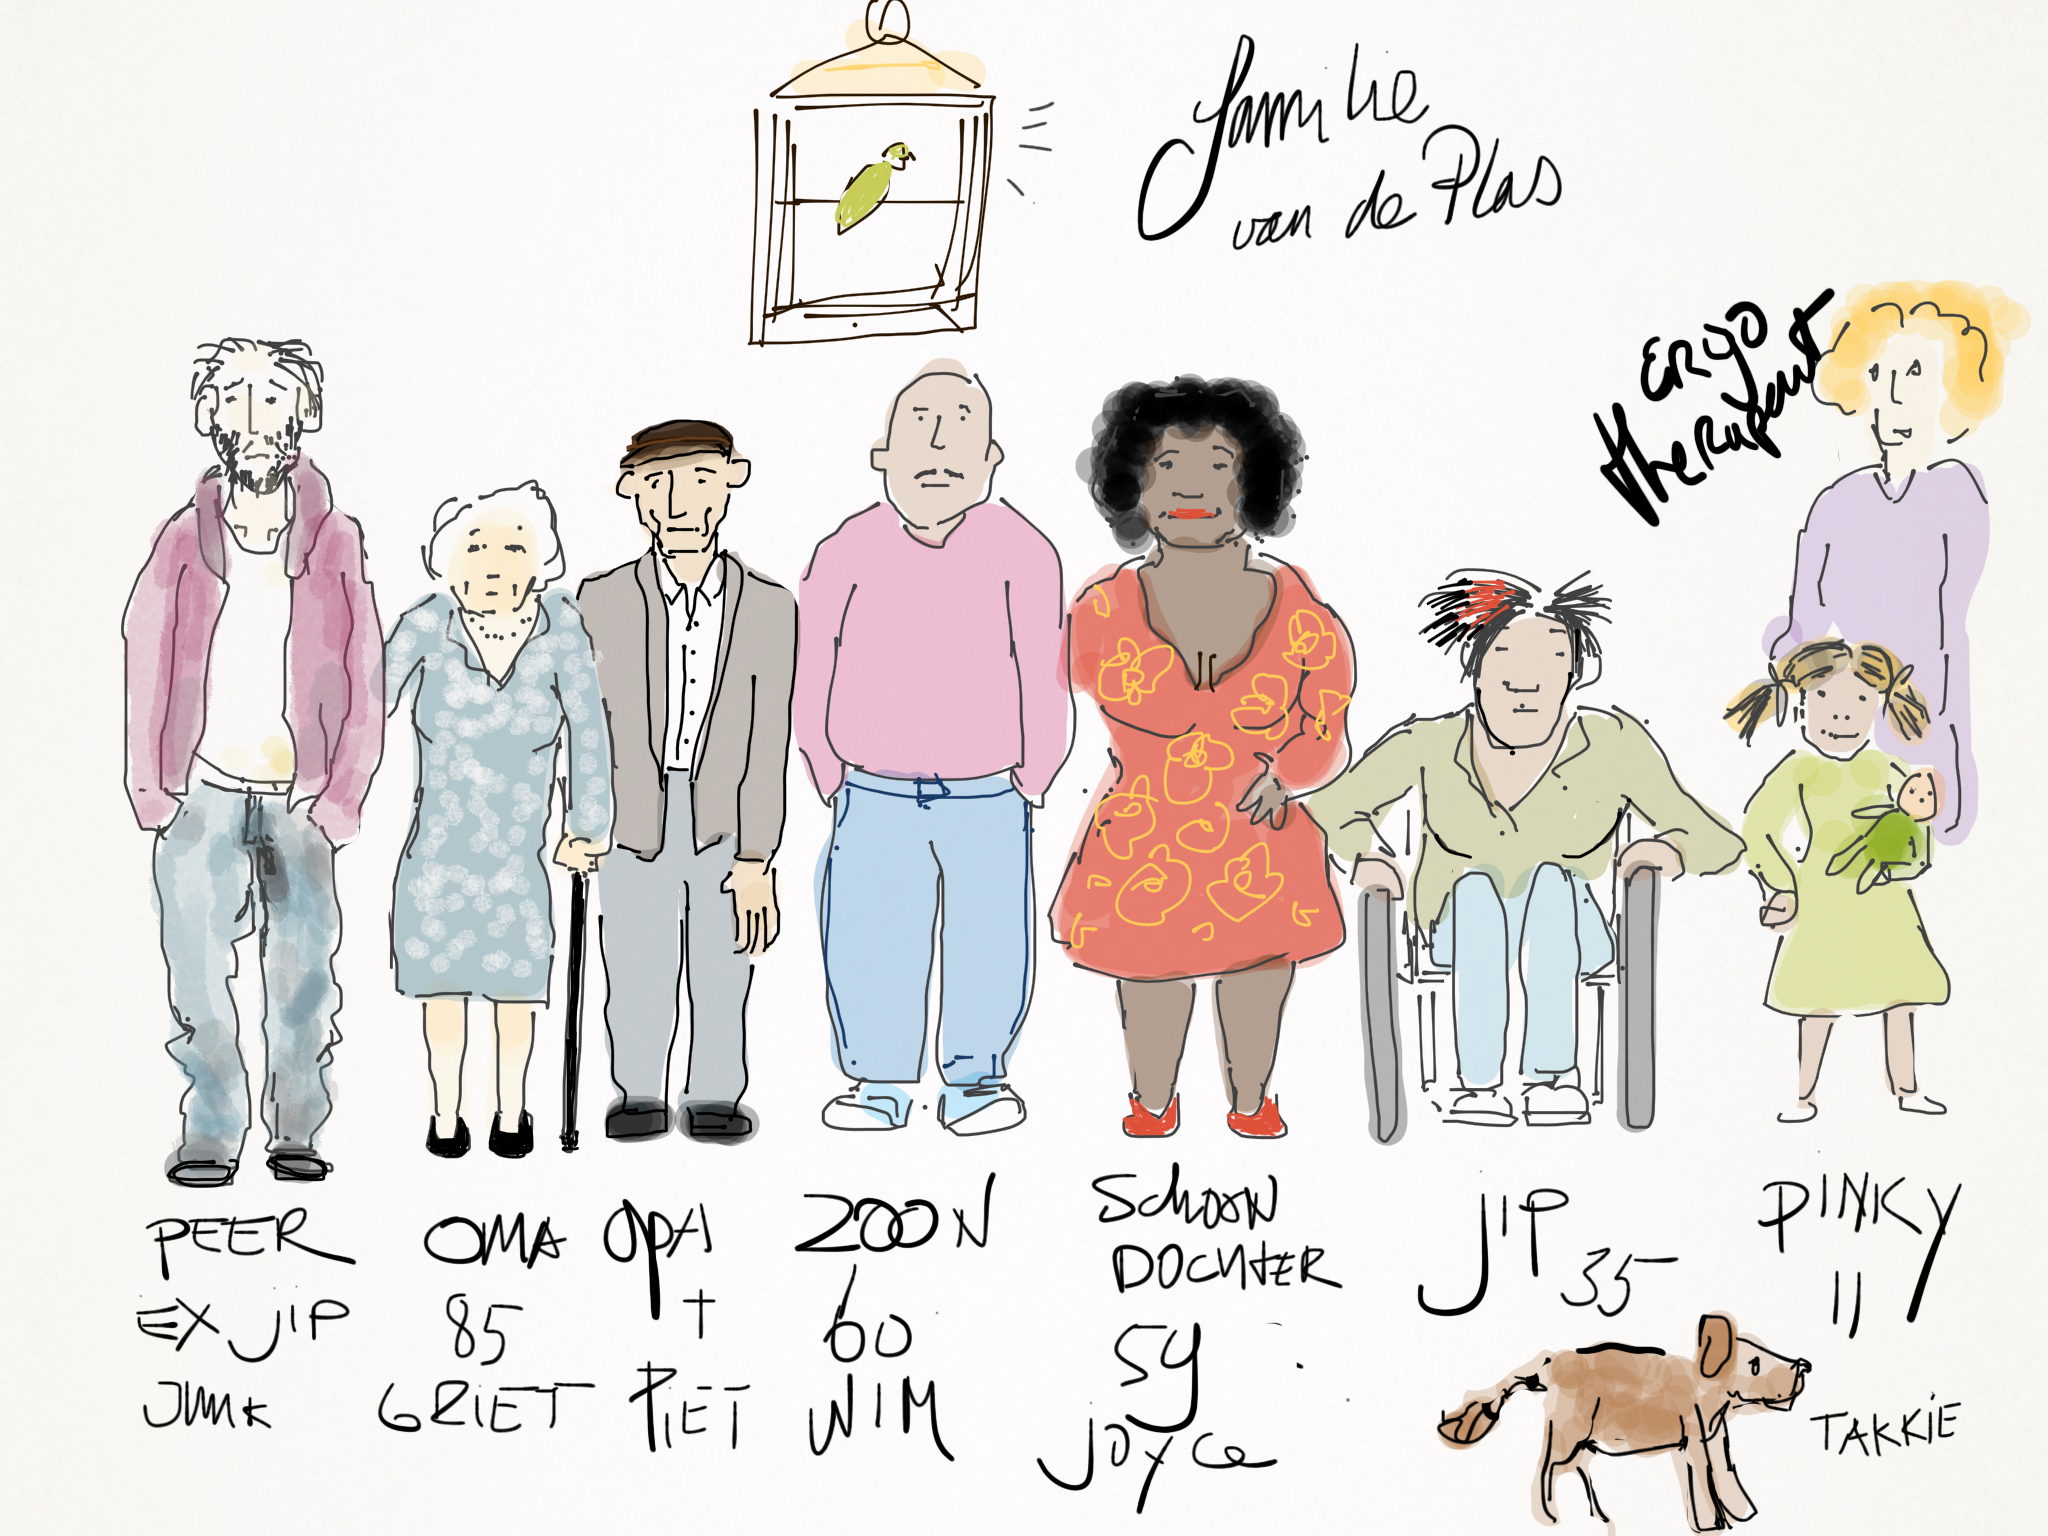 Familie
van de Plas
ERGO
theRapeut
PEER
EX JIP
JUNK
OMA
85
GRIET
OPA
†
PIET
ZOON
60
WIM
SCHOON
DOCHTER
59
JOYCe
JIP 35
PINKY
11
TAKKIE